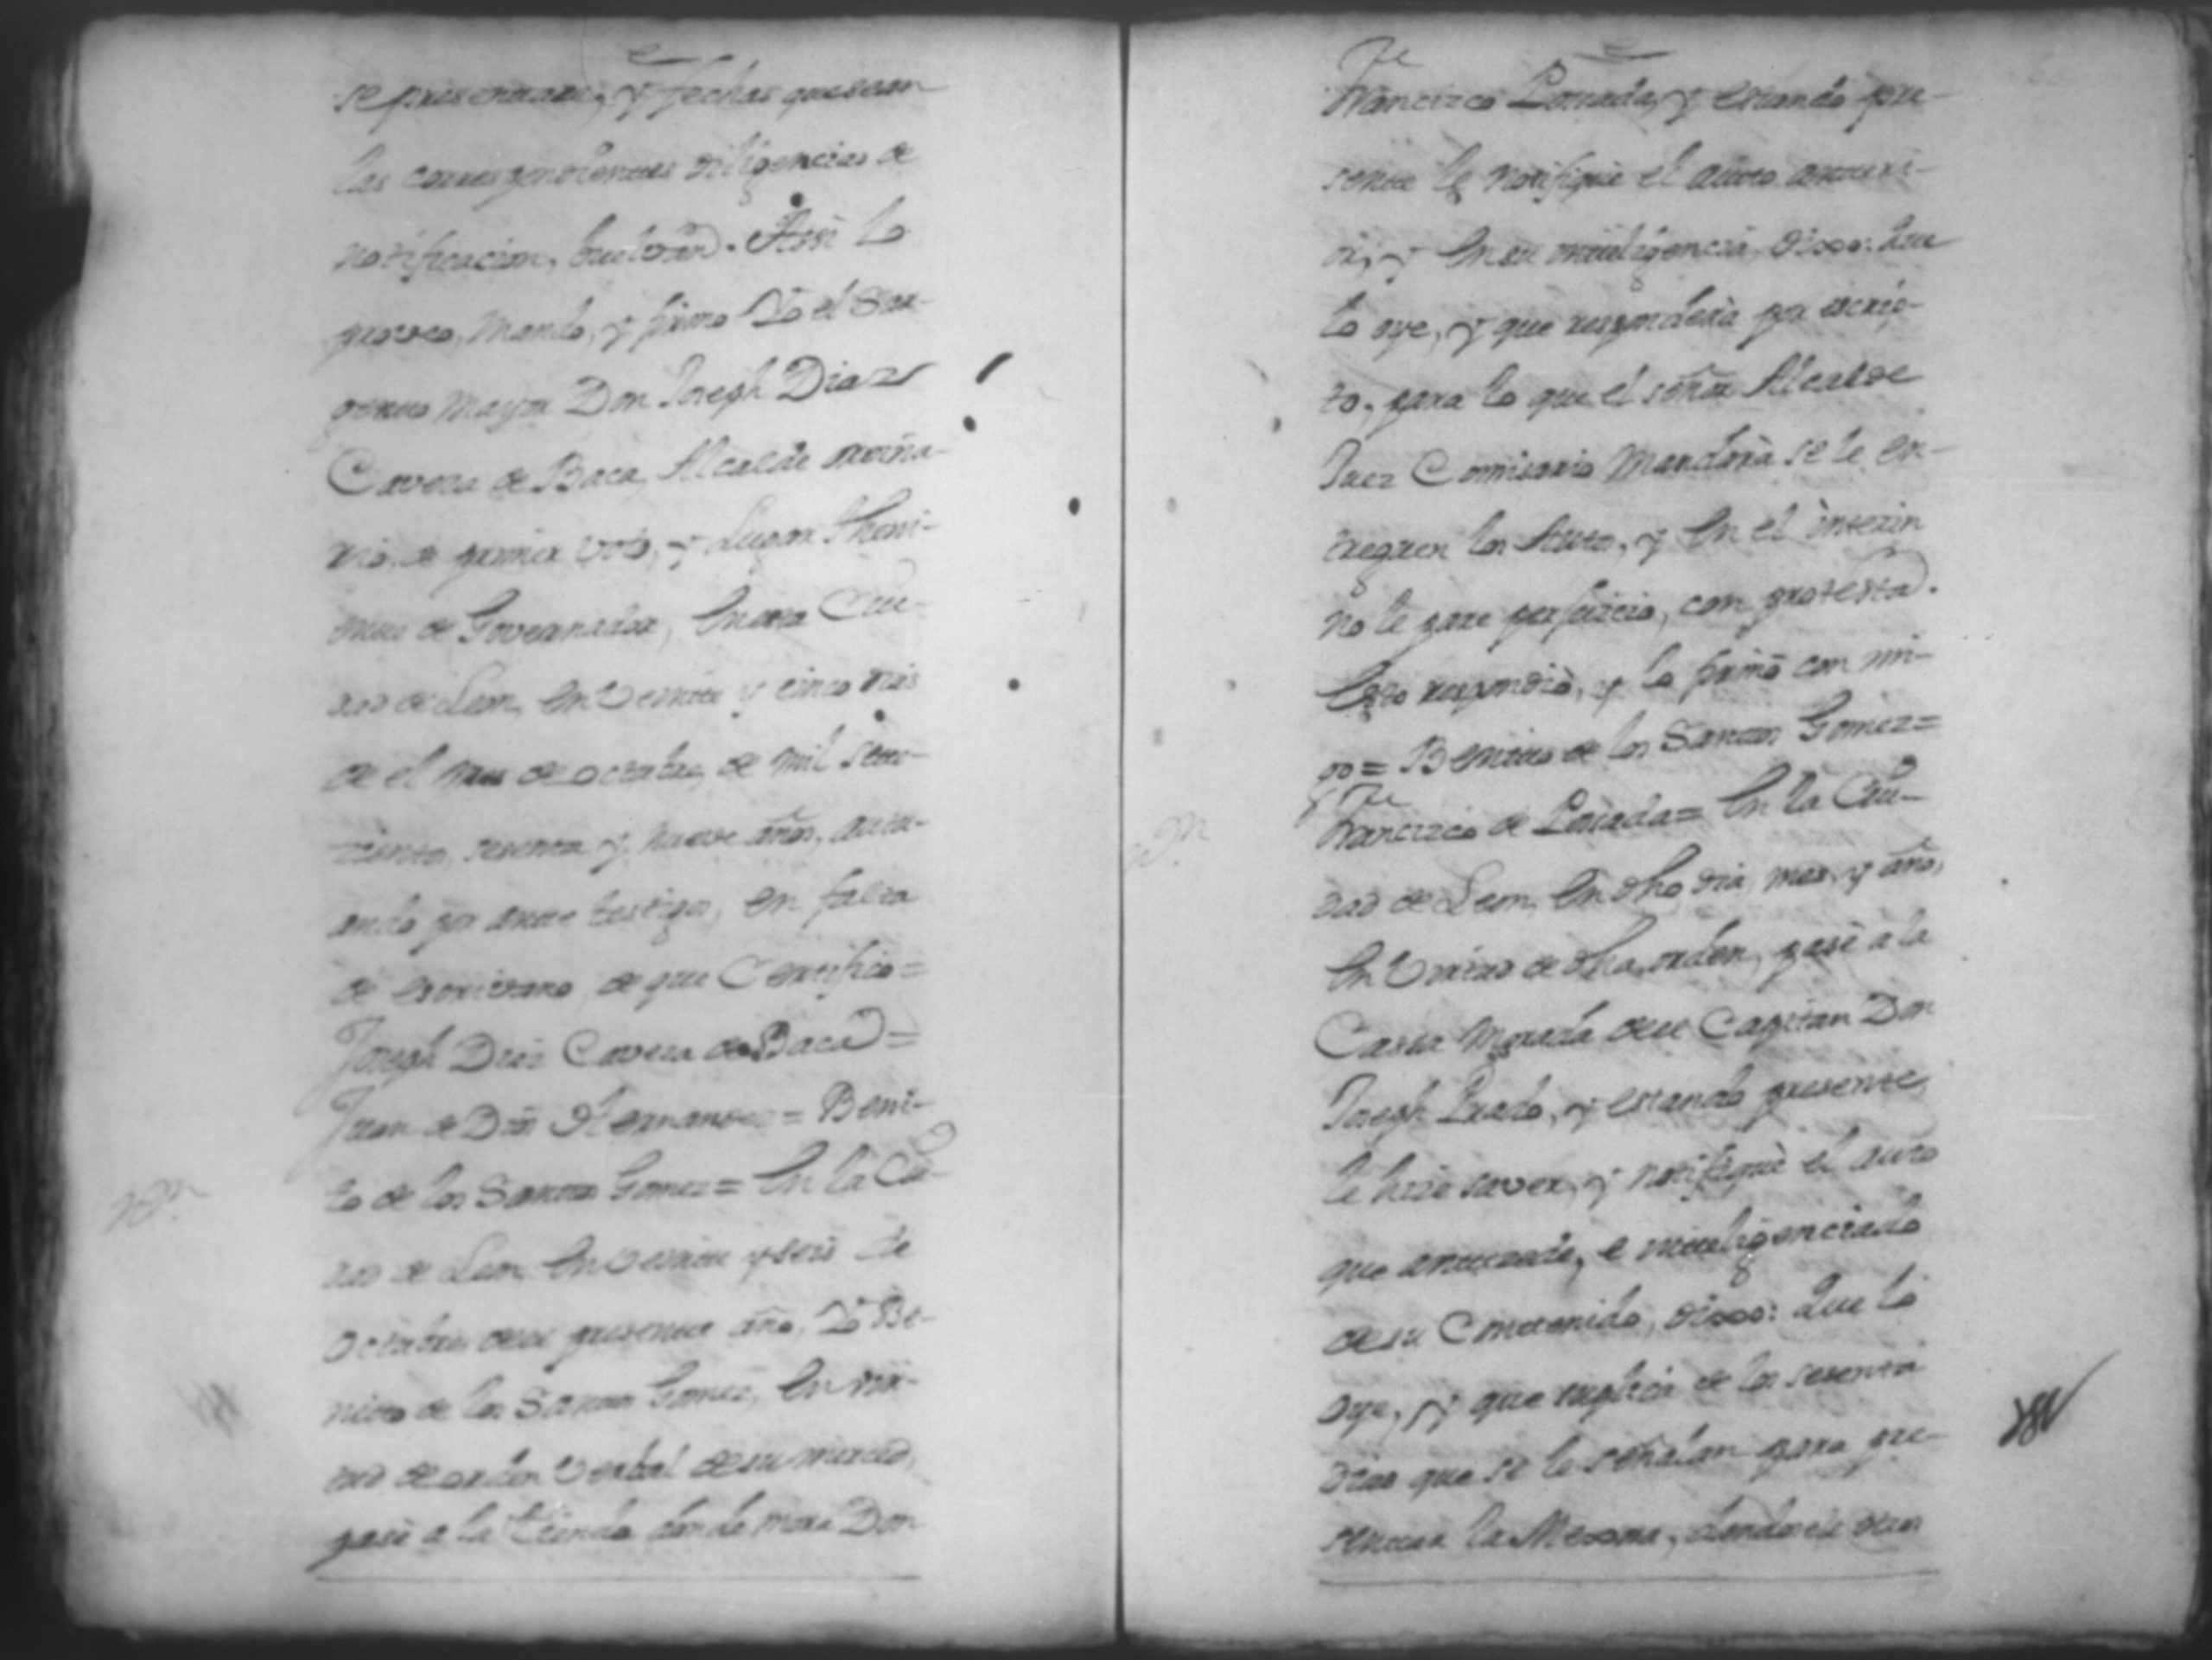 se presentare, y fechas que sean
las correspondientes diligencias de
notificacion, buelvan. Assi lo
proveo, mando, y firmo Yo el Sar-
gento Mayor Don Joseph Diaz
Caveza de Baca, Alcalde ordina-
rio de primer voto, y Lugar Theni-
ente de Governador, en esta Ciu-
dad de Leon, en Veinte y cinco dias
de el mes de octubre, de mil sete-
cientos, sesenta y nueve años, actu-
ando por ante testigos, en falta
de escrivano, de que Certifico=
Joseph Diaz Caveza de Baca=
Juan de Dios Hernandez= Beni-
to de los Santos Gomez= En la Ciu-
dad de Leon, en Veinte y seis de
Octubre, de el presente año, Yo Be-
nito de los Santos Gomez, en vir-
tud de orden Verbal de su merced,
pasé a la tienda donde mora Don
Francizco Posada, y estando pre-
sente le notifiqué el auto anteri-
or, y en su inteligencia, dixo: Que
lo oye, y que responderá por escrip-
to, para lo que el señor Alcalde
Juez Comisario mandará se le en-
treguen los Autos, y en el interin
no le pare perjuicio, con protesta.
Esto respondió, y lo firmó con mi-
go= Benito de los Santos Gomez=
Francizco de Posada= En la Ciu-
dad de Leon, en dho dia, mes, y año,
En Virtud de dha orden, pasé a la
Cassa morada de el Capitan Don
Joseph Prado, y estando presente,
le hize saver, y notifiqué el auto
que antecede, e inteligenciado
de su Contenido, dixo: Que lo
oye, y que suplica de los sesenta
dias que se le señalan para pre-
sentar la Mexora, donde se